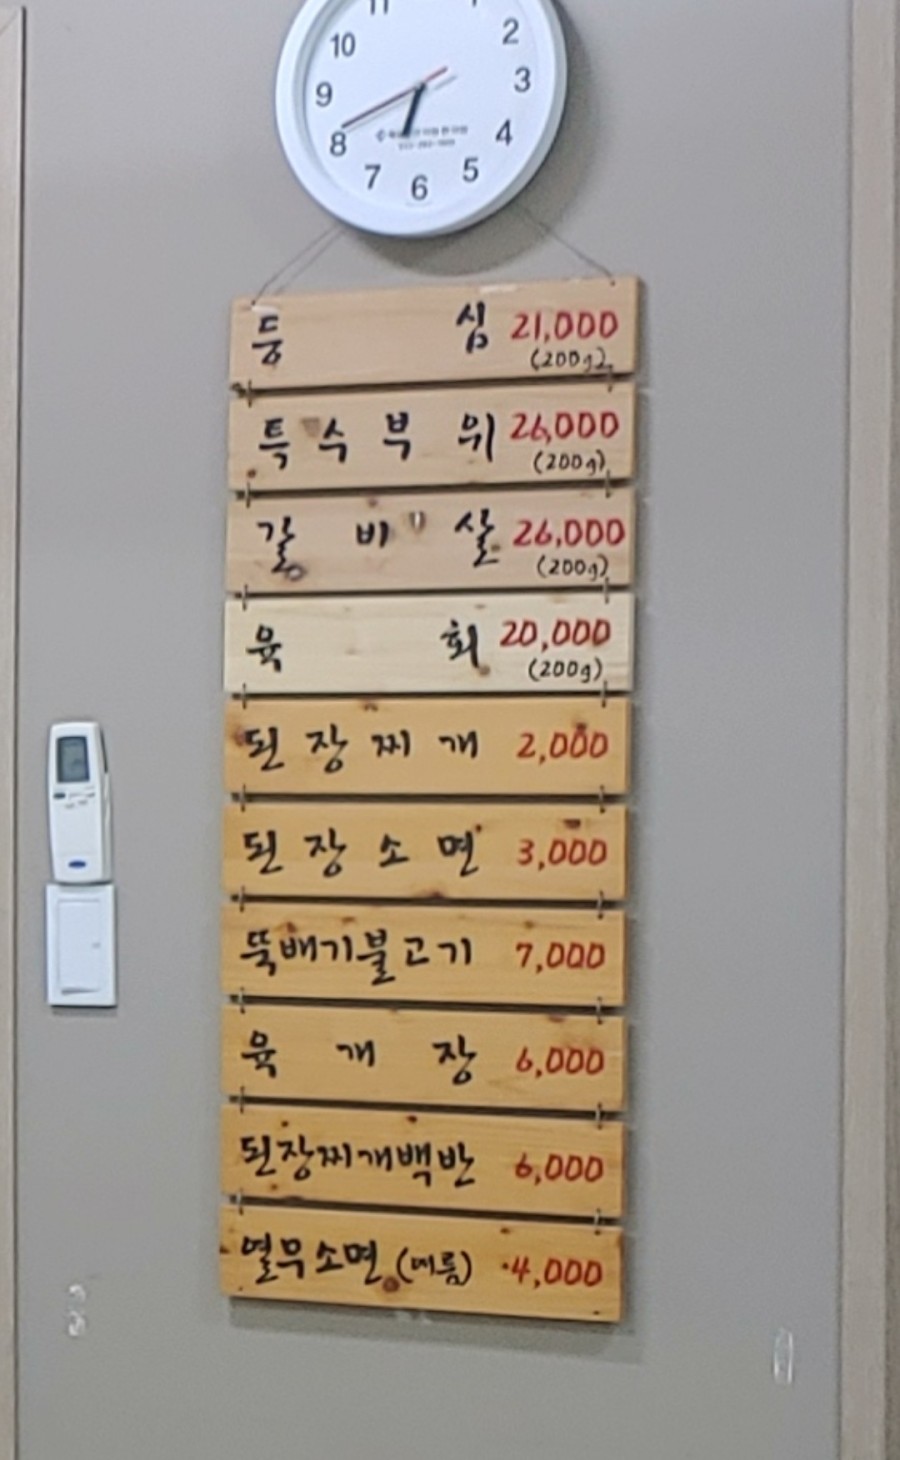 11 1
10 2
9 3
8 4
7 6 5
등심 21,000
(200g)
특수부위 26,000
(200g)
갈비살 26,000
(200g)
육회 20,000
(200g)
된장찌개 2,000
된장소면 3,000
뚝배기불고기 7,000
육개장 6,000
된장찌개백반 6,000
열무소면 (여름) 4,000